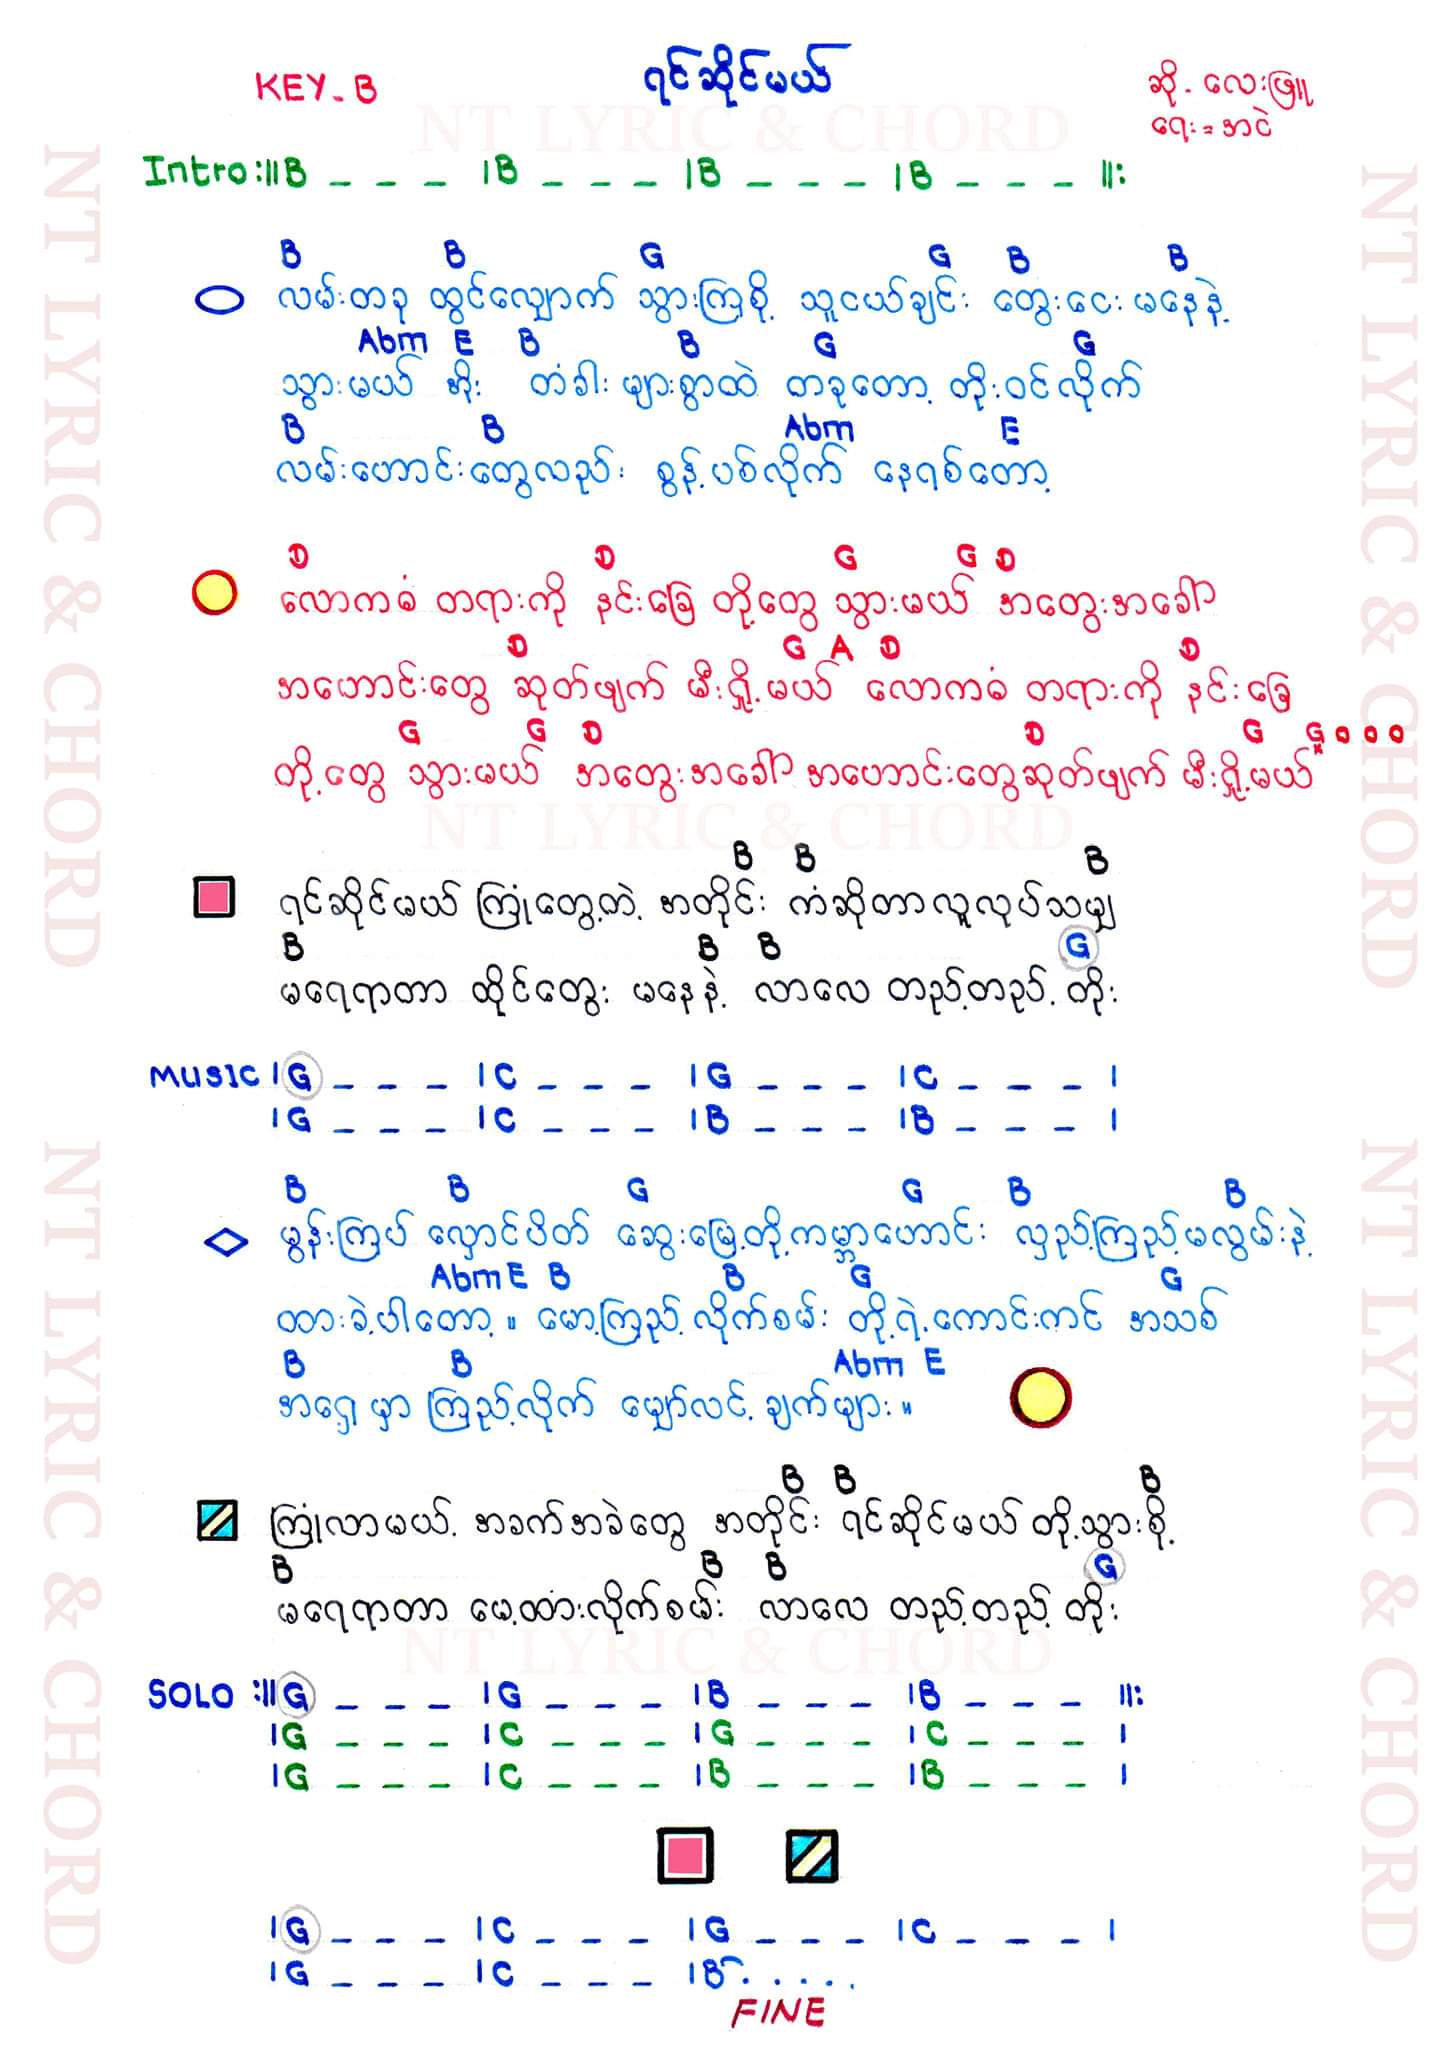 ရင်ဆိုင်မယ်
KEY - B
ဆို - လေးဖြူ
ရေး = အငဲ
NT LYRIC & CHORD
Intro :||B _ _ _ |B _ _ _ |B _ _ _ |B _ _ _ ||:
B B G G B B
လမ်းတခု ထွင်လျှောက် သွားကြစို့ သူငယ်ချင်း တွေးငေး မနေနဲ့
Abm E B B G G
သွားမယ် အိုး တံခါး များစွာထဲ တခုတော့ တိုးဝင်လိုက်
B B Abm E
လမ်းဟောင်းတွေလည်း စွန့်ပစ်လိုက် နေရစ်တော့
D D G G D
လောကဓံ တရားကို နင်းခြေ တို့တွေ သွားမယ် အတွေးအခေါ်
D G A D D
အဟောင်းတွေ ဆုတ်ဖျက် မီးရှို့မယ် လောကဓံ တရားကို နင်းခြေ
G G D D G G
တို့တွေ သွားမယ် အတွေးအခေါ် အဟောင်းတွေဆုတ်ဖျက် မီးရှို့မယ်
B B B
ရင်ဆိုင်မယ် ကြုံတွေ့ကဲ့ အတိုင်း ကံဆိုတာလူလုပ်သမျှ
B B B G
မရေရာတာ ထိုင်တွေး မနေနဲ့ လာလေ တည့်တည့် တိုး
MUSIC |G _ _ _ |C _ _ _ |G _ _ _ |C _ _ _ |
|G _ _ _ |C _ _ _ |B _ _ _ |B _ _ _ |
B B G G B B
မွန်းကြပ် လှောင်ပိတ် ဆွေးမြေ့တို့ကမ္ဘာဟောင်း လှည့်ကြည့်မလွမ်းနဲ့
Abm E B B G G
ထားခဲ့ပါတော့ ။ မော့ကြည့် လိုက်စမ်း တို့ရဲ့ကောင်းကင် အသစ်
B B Abm E
အရှေ့မှာ ကြည့်လိုက် မျှော်လင့် ချက်များ ။
B B B
ကြုံလာမယ့် အခက်အခဲတွေ အတိုင်း ရင်ဆိုင်မယ် တို့သွားစို့
B B B G
မရေရာတာ မေ့ထားလိုက်စမ်း လာလေ တည့်တည့် တိုး
SOLO :||G _ _ _ |G _ _ _ |B _ _ _ |B _ _ _ ||:
|G _ _ _ |C _ _ _ |G _ _ _ |C _ _ _ |
|G _ _ _ |C _ _ _ |B _ _ _ |B _ _ _ |
|G _ _ _ |C _ _ _ |G _ _ _ |C _ _ _ |
|G _ _ _ |C _ _ _ |B . . . . .
FINE